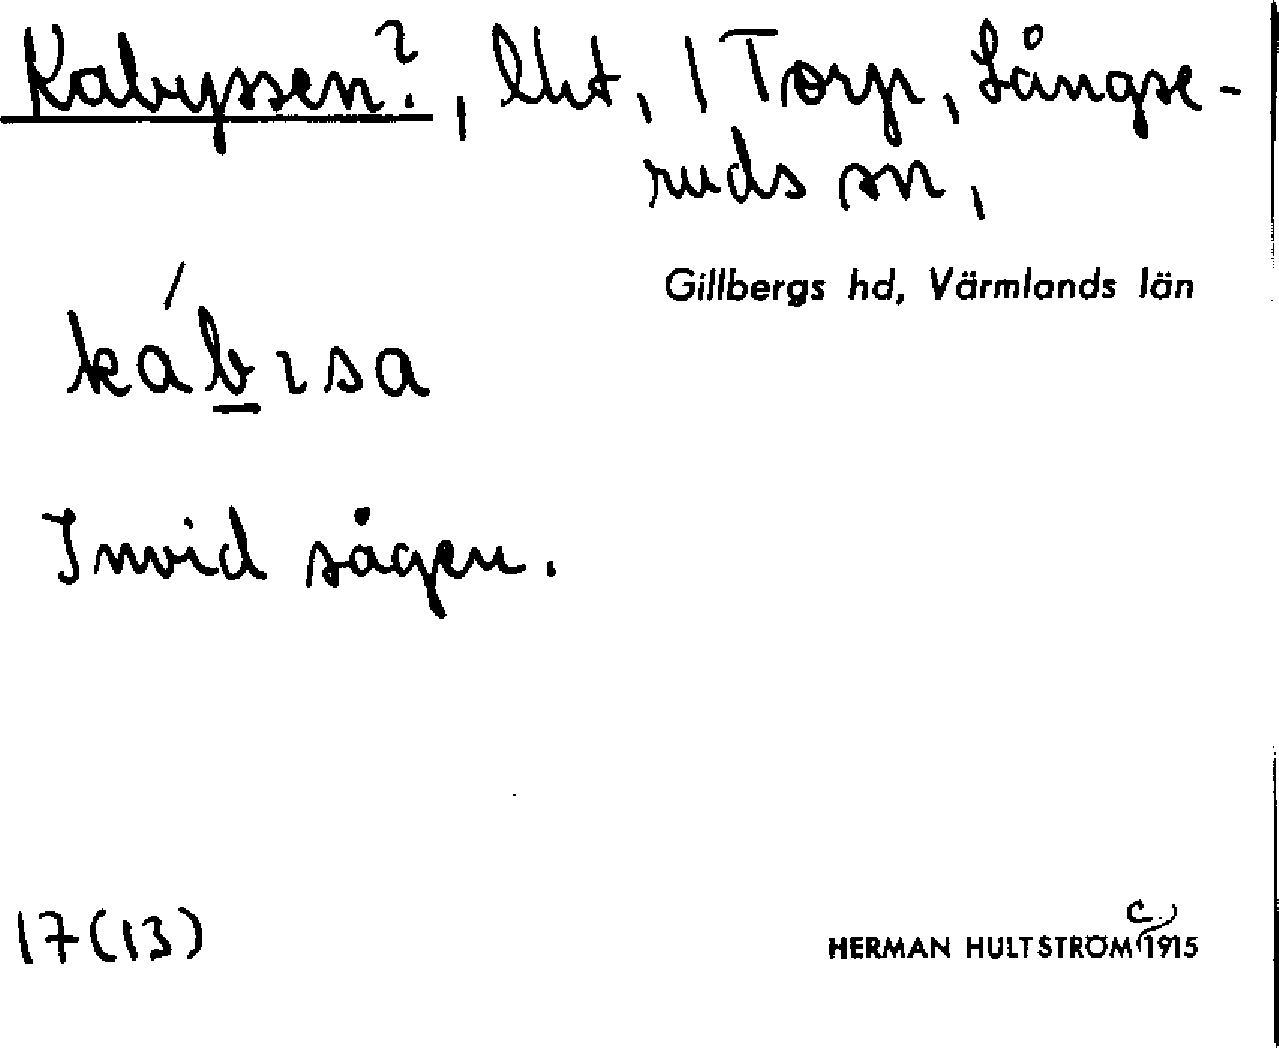 Kabyssen?, lht, 1 Torp, Långse-
ruds sn,
Gillbergs hd, Värmlands län
kábɪsa
Invid sågen.
17(13)
HERMAN HULTSTRÖM (c.) 1915